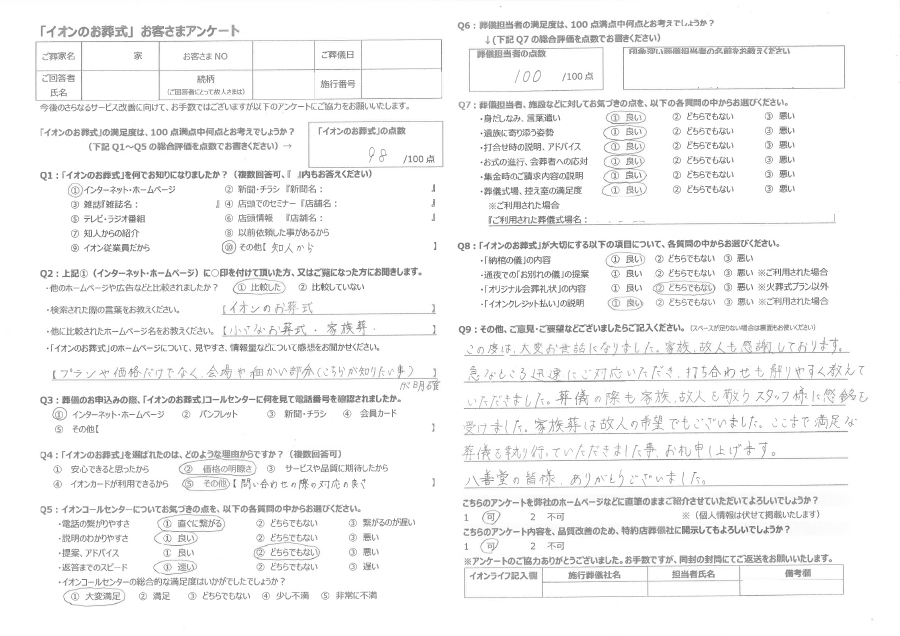 「イオンのお葬式」お客さまアンケート
ご葬家名 家 お客さまNO ご葬儀日
ご回答者氏名 続柄 (ご回答者にとって故人さまは) 施行番号
今後のさらなるサービス改善に向けて、お手数ではございますが以下のアンケートにご協力をお願いいたします。
「イオンのお葬式」の満足度は、100点満点中何点とお考えでしょうか?
(下記Q1~Q5の総合評価を点数でお書きください)→
「イオンのお葬式」の点数
98 /100点
Q1:「イオンのお葬式」を何でお知りになりましたか?(複数回答可、『 』内もお答えください)
① インターネット・ホームページ ② 新聞・チラシ『新聞名: 』
③ 雑誌『雑誌名: 』 ④ 店頭でのセミナー『店舗名: 』
⑤ テレビ・ラジオ番組 ⑥ 店頭情報 『店舗名: 』
⑦ 知人からの紹介 ⑧ 以前依頼した事があるから
⑨ イオン従業員だから ⑩ その他【 知人から 】
Q2:上記①(インターネット・ホームページ)に○印を付けて頂いた方、又はご覧になった方にお聞きします。
・他のホームページや広告などと比較されましたか? ① 比較した ② 比較していない
・検索された際の言葉をお教えください。【イオンのお葬式 】
・他に比較されたホームページ名をお教えください。【小さなお葬式・家族葬・ 】
・「イオンのお葬式」のホームページについて、見やすさ、情報量などについて感想をお聞かせください。
【プランや価格だけでなく、会場や細かい部分(こちらが知りたい事)】
が明確
Q3:葬儀のお申込みの際、「イオンのお葬式」コールセンターに何を見て電話番号を確認されましたか。
① インターネット・ホームページ ② パンフレット ③ 新聞・チラシ ④ 会員カード
⑤ その他【 】
Q4:「イオンのお葬式」を選ばれたのは、どのような理由からですか?(複数回答可)
① 安心できると思ったから ② 価格の明瞭さ ③ サービスや品質に期待したから
④ イオンカードが利用できるから ⑤ その他【問い合わせの際の対応の良さ 】
Q5:イオンコールセンターについてお気づきの点を、以下の各質問の中からお選びください。
・電話の繋がりやすさ ① 直ぐに繋がる ② どちらでもない ③ 繋がるのが遅い
・説明のわかりやすさ ① 良い ② どちらでもない ③ 悪い
・提案、アドバイス ① 良い ② どちらでもない ③ 悪い
・返答までのスピード ① 速い ② どちらでもない ③ 遅い
・イオンコールセンターの総合的な満足度はいかがでしたでしょうか?
① 大変満足 ② 満足 ③ どちらでもない ④ 少し不満 ⑤ 非常に不満
Q6:葬儀担当者の満足度は、100点満点中何点とお考えでしょうか?
↓(下記Q7の総合評価を点数でお書きください)
葬儀担当者の点数
100 /100点
印象深い葬儀担当者の名前をお教えください
Q7:葬儀担当者、施設などに対してお気づきの点を、以下の各質問の中からお選びください。
・身だしなみ、言葉遣い ① 良い ② どちらでもない ③ 悪い
・遺族に寄り添う姿勢 ① 良い ② どちらでもない ③ 悪い
・打合せ時の説明、アドバイス ① 良い ② どちらでもない ③ 悪い
・お式の進行、会葬者への応対 ① 良い ② どちらでもない ③ 悪い
・集金時のご請求内容の説明 ① 良い ② どちらでもない ③ 悪い
・葬儀式場、控え室の満足度 ① 良い ② どちらでもない ③ 悪い
※ご利用された場合
『ご利用された葬儀式場名: 』
Q8:「イオンのお葬式」が大切にする以下の項目について、各質問の中からお選びください。
・「納棺の儀」の内容 ① 良い ② どちらでもない ③ 悪い
・通夜での「お別れの儀」の提案 ① 良い ② どちらでもない ③ 悪い ※ご利用された場合
・「オリジナル会葬礼状」の内容 ① 良い ② どちらでもない ③ 悪い ※火葬式プラン以外
・「イオンクレジット払い」の説明 ① 良い ② どちらでもない ③ 悪い ※ご利用された場合
Q9:その他、ご意見・ご要望などございましたらご記入ください。(スペースが足りない場合は裏面もお使いください)
この度は、大変お世話になりました。家族、故人も感謝しております。
急なところ迅速にご対応いただき、打ち合わせも解りやすく教えて
いただきました。葬儀の際も家族、故人を敬うスタッフ様に感銘を
受けました。家族葬は故人の希望でもございました。ここまで満足な
葬儀を執り行っていただきました事、お礼申し上げます。
八番堂の皆様、ありがとうございました。
こちらのアンケートを弊社のホームページなどに直筆のままご紹介させていただいてよろしいでしょうか?
1 可 2 不可 ※(個人情報は伏せて掲載いたします)
こちらのアンケート内容を、品質改善のため、特約店葬儀社に開示してもよろしいでしょうか?
1 可 2 不可
※アンケートのご協力ありがとうございました。お手数ですが、同封の封筒にてご返送をお願いいたします。
イオンライフ記入欄 施行葬儀社名 担当者氏名 備考欄